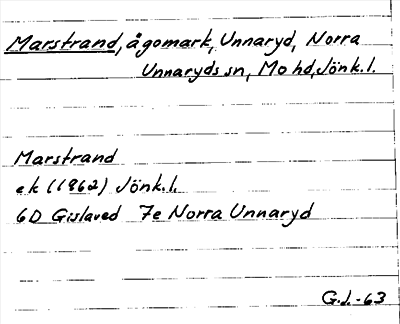 Marstrand, ägomark, Unnaryd, Norra
Unnaryds sn, Mo hd, Jönk.l.
Marstrand
ek (1962) Jönk.l.
6D Gislaved 7e Norra Unnaryd
G.J.-63